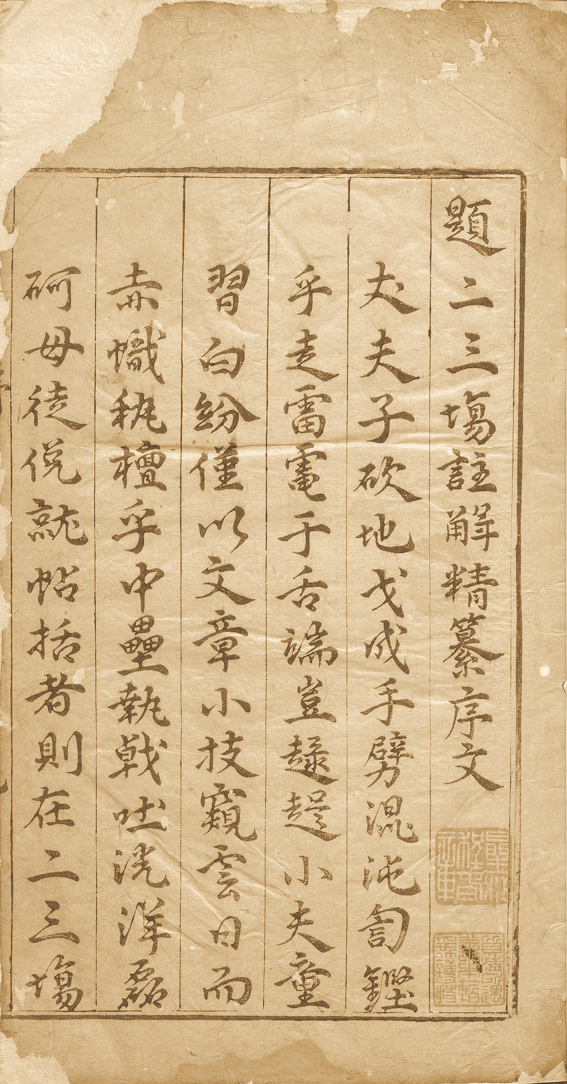 題二三場註解精纂序文
丈夫子砍地戈成手劈混沌訇鏗
乎走雷電于舌端豈趢趗小夫童
習白紛僅以文章小技窺雲日而
赤幟秇檀乎中壘執戟吐洸洋磊
砢毋徒侻就帖括者則在二三場